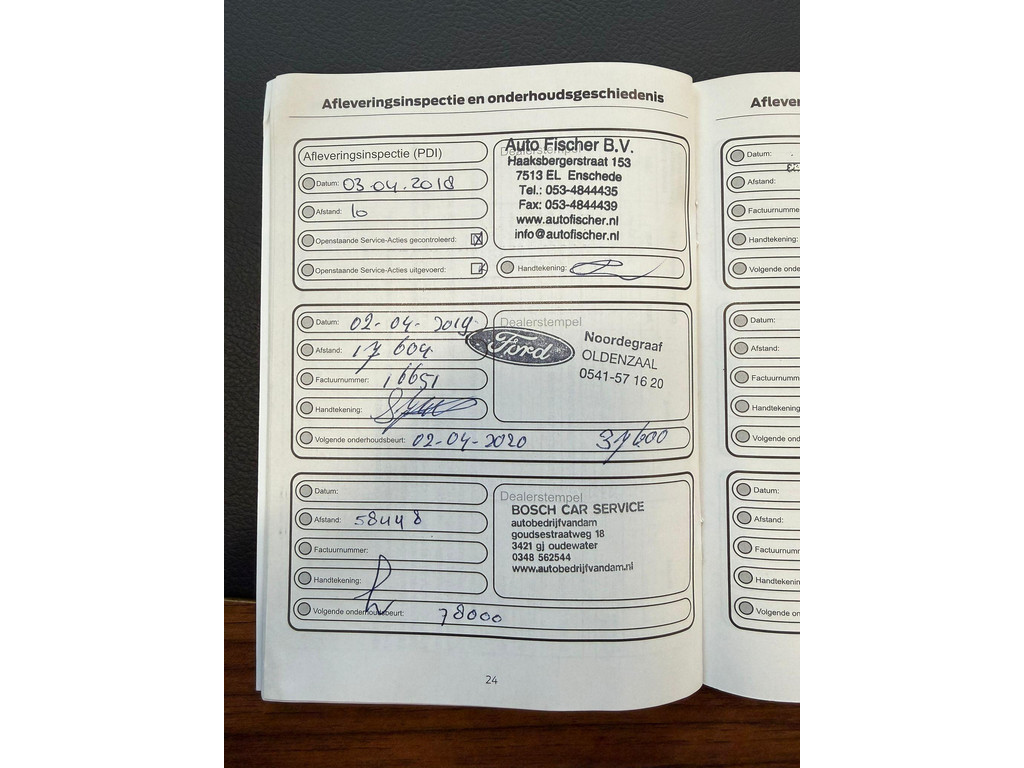 Afleveringsinspectie en onderhoudsgeschiedenis
Afleveringsinspectie (PDI)
Datum: 03.04.2018
Afstand: 10
Openstaande Service-Acties gecontroleerd:
Openstaande Service-Acties uitgevoerd:
Dealerstempel
Auto Fischer B.V.
Haaksbergerstraat 153
7513 EL Enschede
Tel.: 053-4844435
Fax: 053-4844439
www.autofischer.nl
info@autofischer.nl
Handtekening:
Datum: 02-04-2019
Afstand: 17604
Factuurnummer: 16651
Handtekening:
Volgende onderhoudsbeurt: 02-04-2020 37600
Dealerstempel
Ford
Noordegraaf
OLDENZAAL
0541-57 16 20
Datum:
Afstand: 58448
Factuurnummer:
Handtekening:
Volgende onderhoudsbeurt: 78000
Dealerstempel
BOSCH CAR SERVICE
autobedrijfvandam
goudsestraatweg 18
3421 gj oudewater
0348 562544
www.autobedrijfvandam.nl
24
Aflever
Datum:
Afstand:
Factuurnumme
Handtekening:
Volgende onde
Datum:
Afstand:
Factuurnumm
Handtekening
Volgende ond
Datum:
Afstand:
Factuurnumr
Handtekening
Volgende on